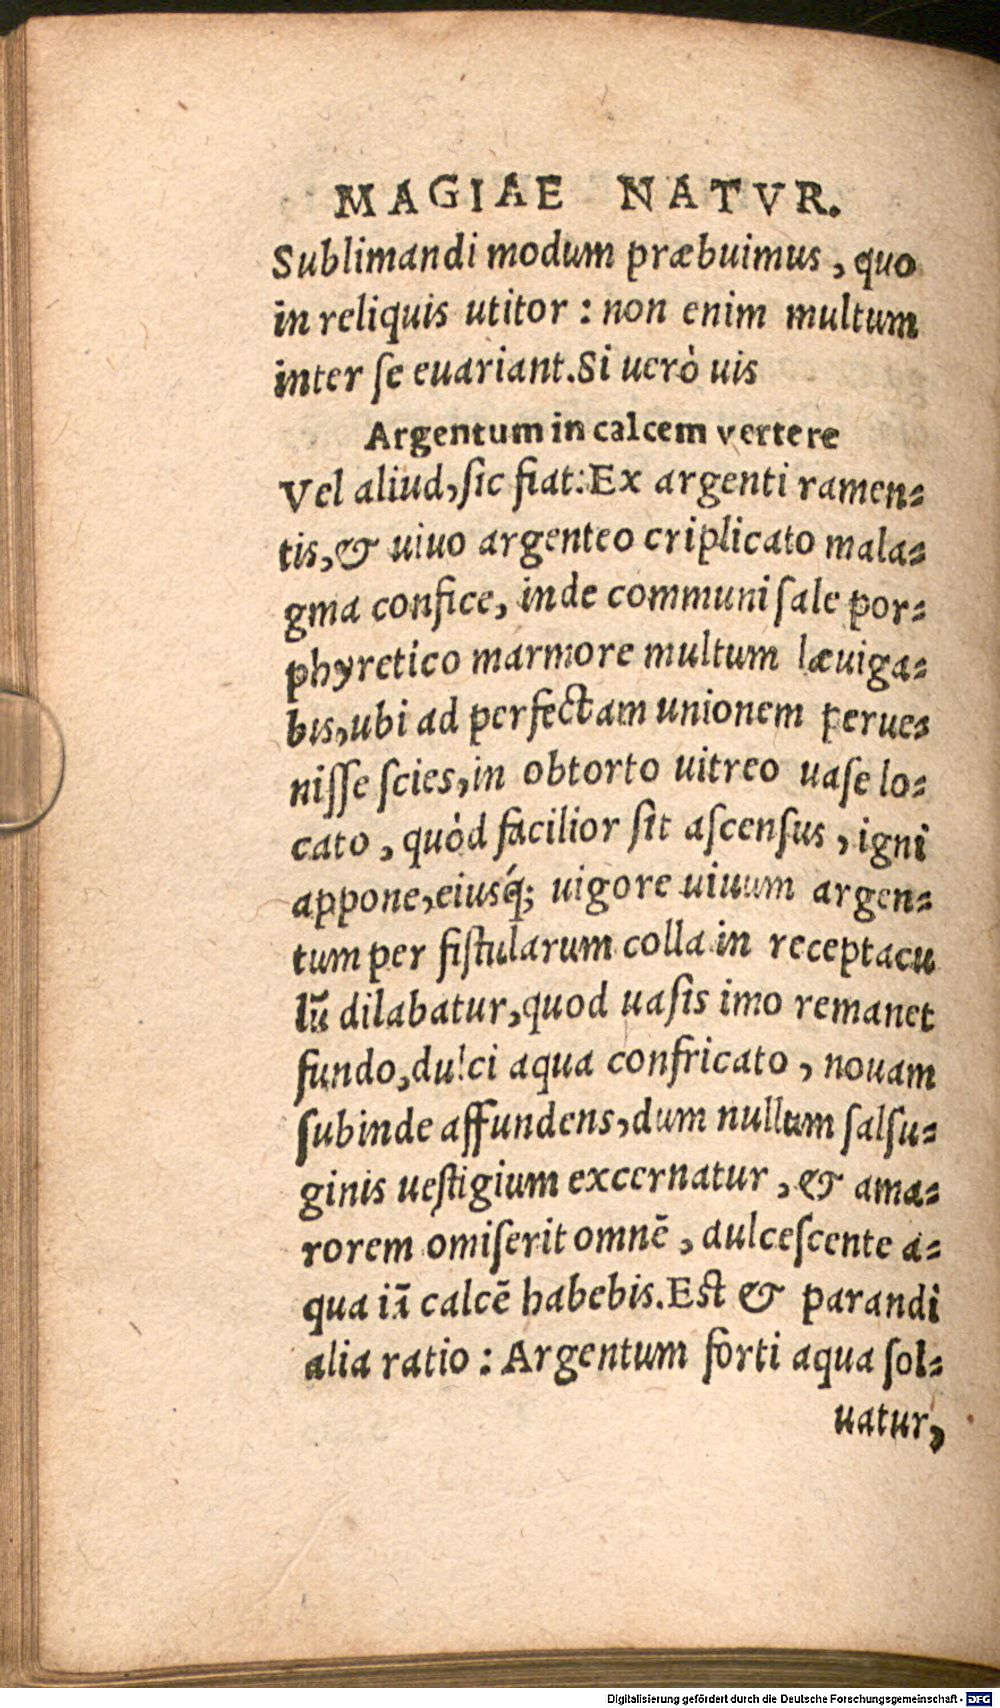 MAGIAE NATVR.
Sublimandi modum præbuimus, quo
in reliquis utitor : non enim multum
inter ſe euariant. Si uerò uis
Argentum in calcem vertere
Vel aliud, ſic fiat: Ex argenti ramen-
tis, & uiuo argenteo criplicato mala-
gma confice, inde communi ſale por-
phyretico marmore multum læuiga-
bis, ubi ad perfectam unionem perue-
niſſe ſcies, in obtorto uitreo uaſe lo-
cato, quòd facilior ſit aſcenſus, igni
appone, eiusq́; uigore uiuum argen-
tum per fiſtularum colla in receptacu
lū dilabatur, quod uaſis imo remanet
fundo, dulci aqua confricato, nouam
subinde affundens, dum nullum ſalſu-
ginis ueſtigium excernatur, & ama-
rorem omiſerit omnē, dulceſcente a-
qua iā calcē habebis. Eſt & parandi
alia ratio : Argentum forti aqua ſol-
uatur,
Digitalisierung gefördert durch die Deutsche Forschungsgemeinschaft - DFG